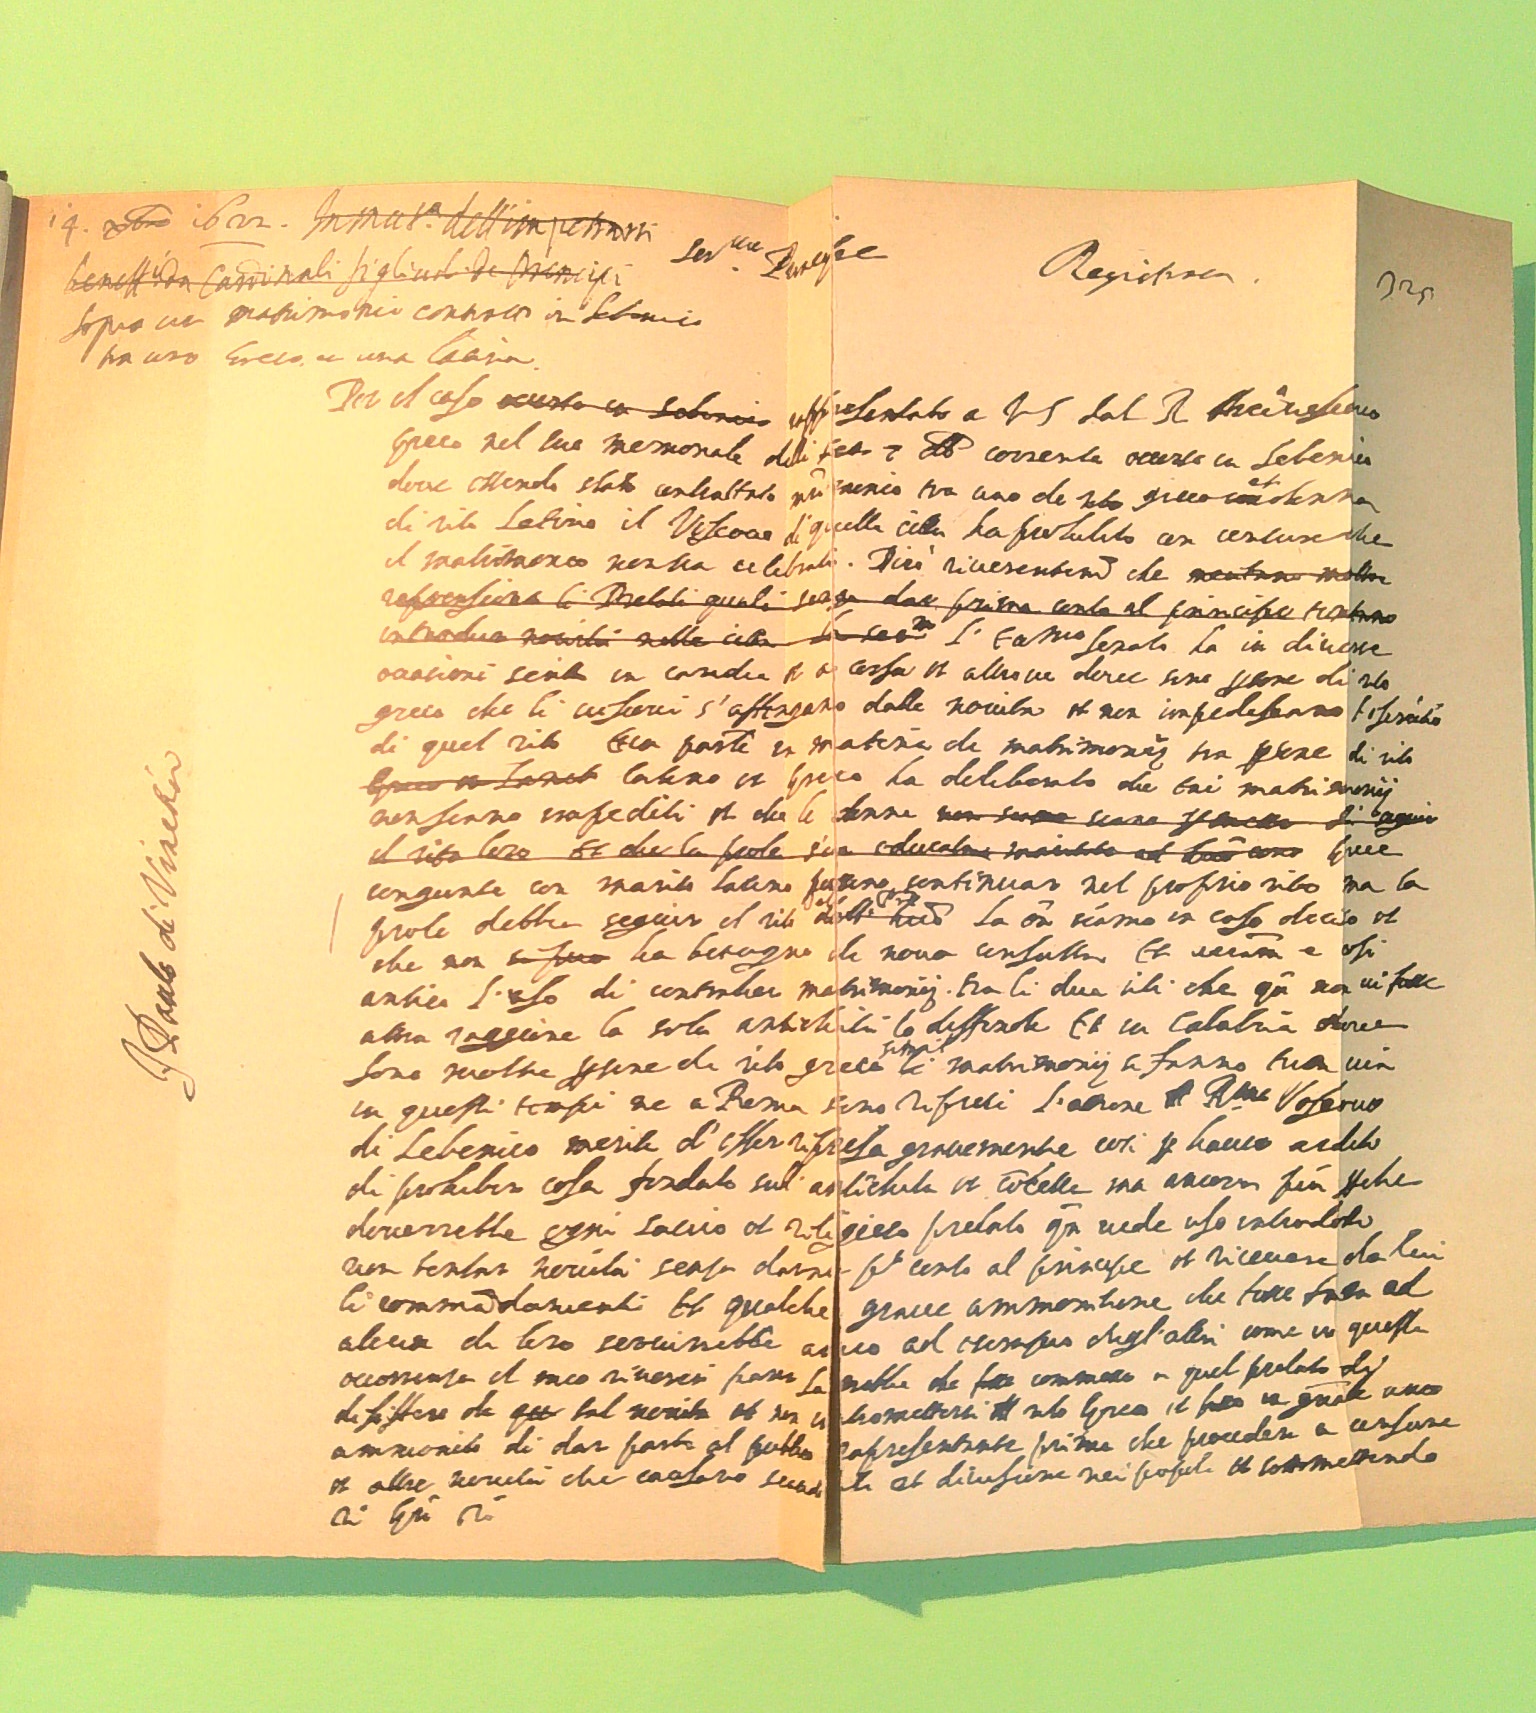 14. 1622. In mat.a dell'impetrarsi
beneff Cardinali figliuoli de Prencipi
sopra un matrimonio contratto in Sebenico
tra uno Greco et una Latina.
Ser.mo Prencipe
Registrata.
325
F Paulo di Vinetia
Per il caso occorso in Sebenico rappresentato a V S dal R Arcivescovo
greco nel suo memoriale delli corrente occorso in Sebenico
dove essendo stato contrattato mr̃imonio tra uno de rito greco et donna
di rito Latino il Vescovo di quella città ha prohibito con censure che
il matrimonio non sia celebrato. Dirò riverentem che meritano molta
reprensione li Prelati quali senza dar prima conto al principe tentano
introdur novità nelle città l'Ecc.mo Senato ha in diverse
occasioni scritto in Candia et a Corfu et altrove dove sono psone di rito
greco che li vescovi s'astengano dalle novità et non impediscano
di quel rito in materia de matrimonij tra psone di rito
Greco et Latino et Greco ha deliberato che tai matrimonij
non siano impediti et che le donne non siano di seguir
il rito loro Et che la prole sia educata Grece
congiunte con marito Latino possino continuar nel proprio rito ma la
prole debbia seguir il rito del La on siamo in caso deciso et
che non ha bisogno de nova consulta Et è così
antico l'uso di contraher matrimonij tra li due riti che qñ non vi fosse
altra raggione la sola antichità lo diffende Et in Calabria dove
sono molte psone de rito greco simili matrimonij si fanno
in questi tempi ne a Roma sono ripresi L'attione Rmo Vescovo
di Sebenico merita d'esser ripresa gravemente così p haver ardito
di prohibir cosa fondata sul antichità et ma ancora più pche
doverrebbe ogni savio et religioso prelato qñ vede uso introdotto
non tentar novità senza darne pa conto al principe et ricevere da lui
li commãdamenti Et qualche grave ammonitione che fosse fatta ad
alcun di loro servirrebbe anco ad essempio degl'altri come in questa
occorrenza il mio riverente parer sarrebbe che fosse commesso a quel prelato di
desistere da tal novità et non intromettersi rito Greco et anco
ammonito di dar parte al publico rapresentante prima che proceder a censure
et altre novità che causano scandali et divisione nei popoli et sottomettendo